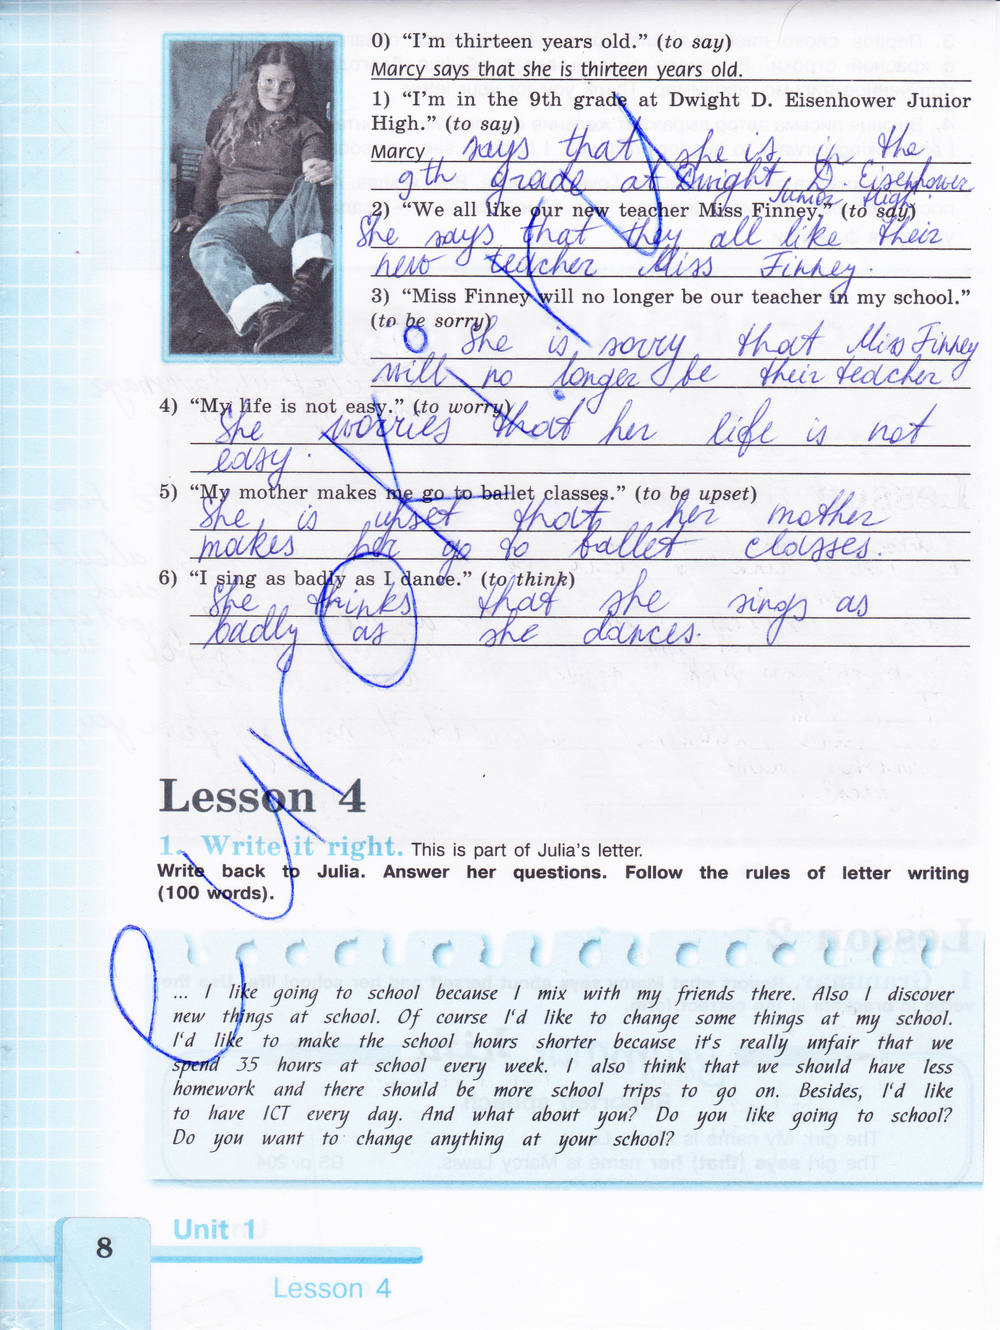 0) “I’m thirteen years old.” (to say)
Marcy says that she is thirteen years old.
1) “I’m in the 9th grade at Dwight D. Eisenhower Junior
High.” (to say)
Marcy says that she is in the
9th grade at Dwight D. Eisenhower
Junior High.
2) “We all like our new teacher Miss Finney.” (to say)
She says that they all like their
new teacher Miss Finney.
3) “Miss Finney will no longer be our teacher in my school.”
(to be sorry)
She is sorry that Miss Finney
will no longer be their teacher
4) “My life is not easy.” (to worry)
She worries that her life is not
easy.
5) “My mother makes me go to ballet classes.” (to be upset)
She is upset that her mother
makes her go to ballet classes.
6) “I sing as badly as I dance.” (to think)
She thinks that she sings as
badly as she dances.
Lesson 4
1. Write it right. This is part of Julia’s letter.
Write back to Julia. Answer her questions. Follow the rules of letter writing
(100 words).
... I like going to school because I mix with my friends there. Also I discover
new things at school. Of course I'd like to change some things at my school.
I'd like to make the school hours shorter because it's really unfair that we
spend 35 hours at school every week. I also think that we should have less
homework and there should be more school trips to go on. Besides, I'd like
to have ICT every day. And what about you? Do you like going to school?
Do you want to change anything at your school?
8
Unit 1
Lesson 4